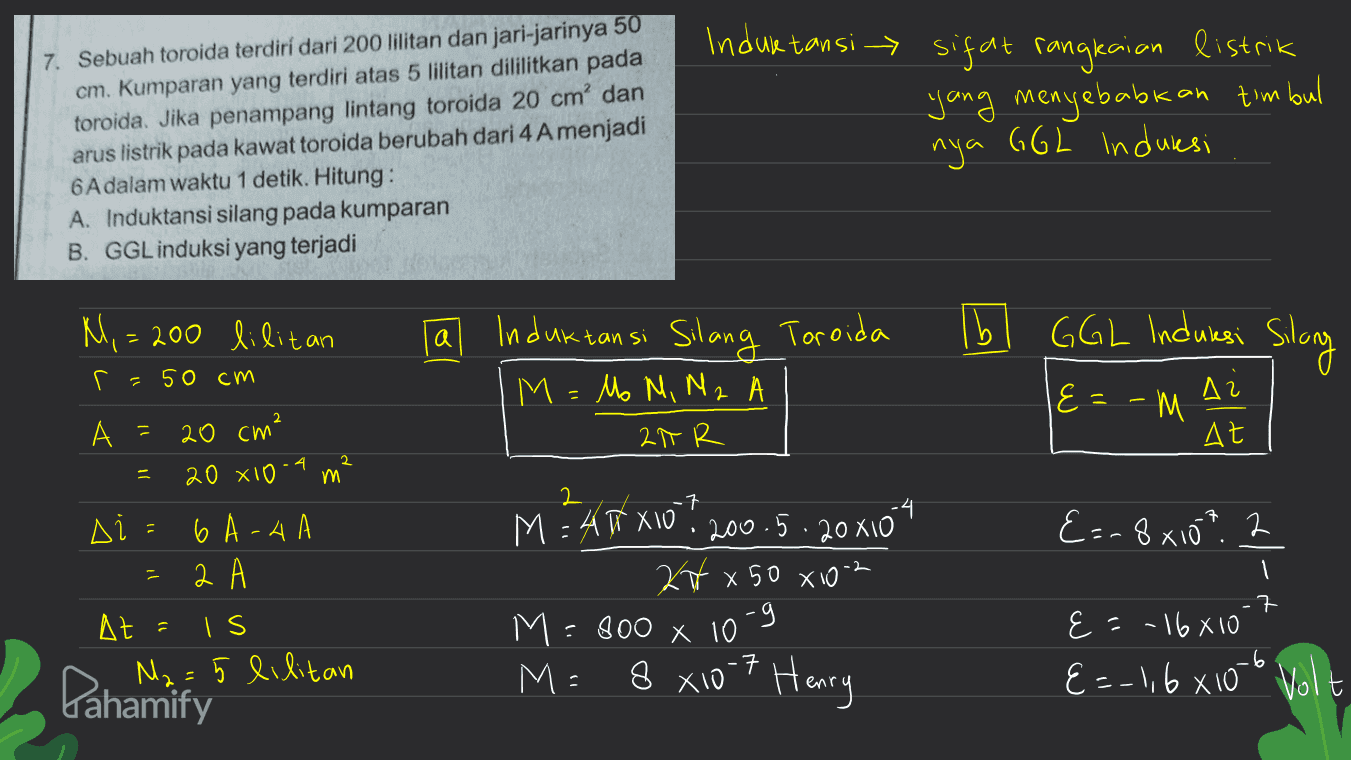 7. Sebuah toroida terdiri dari 200 lilitan dan jari-jarinya 50
cm. Kumparan yang terdiri atas 5 lilitan dililitkan pada
toroida. Jika penampang lintang toroida 20 cm² dan
arus listrik pada kawat toroida berubah dari 4 A menjadi
6 A dalam waktu 1 detik. Hitung :
A. Induktansi silang pada kumparan
B. GGL induksi yang terjadi
Induktansi → sifat rangkaian listrik
yang menyebabkan timbul
nya GGL Induksi.
N₁ = 200 lilitan
r = 50 cm
A = 20 cm²
= 20 x10⁻⁴ m²
Δi = 6 A - 4 A
= 2 A
Δt = 1 s
N₂ = 5 lilitan
a Induktansi Silang Toroida
M = μ₀ N₁ N₂ A
2π R
2
M = 4π x10⁻⁷. 200 . 5 . 20 x10⁻⁴
2π x 50 x10⁻²
M = 800 x 10⁻⁹
M = 8 x10⁻⁷ Henry
b GGL Induksi Silang
ε = - M Δi
Δt
ε = - 8 x10⁻⁷. 2
1
ε = -16 x10⁻⁷
ε = -1,6 x10⁻⁶ Volt
Pahamify